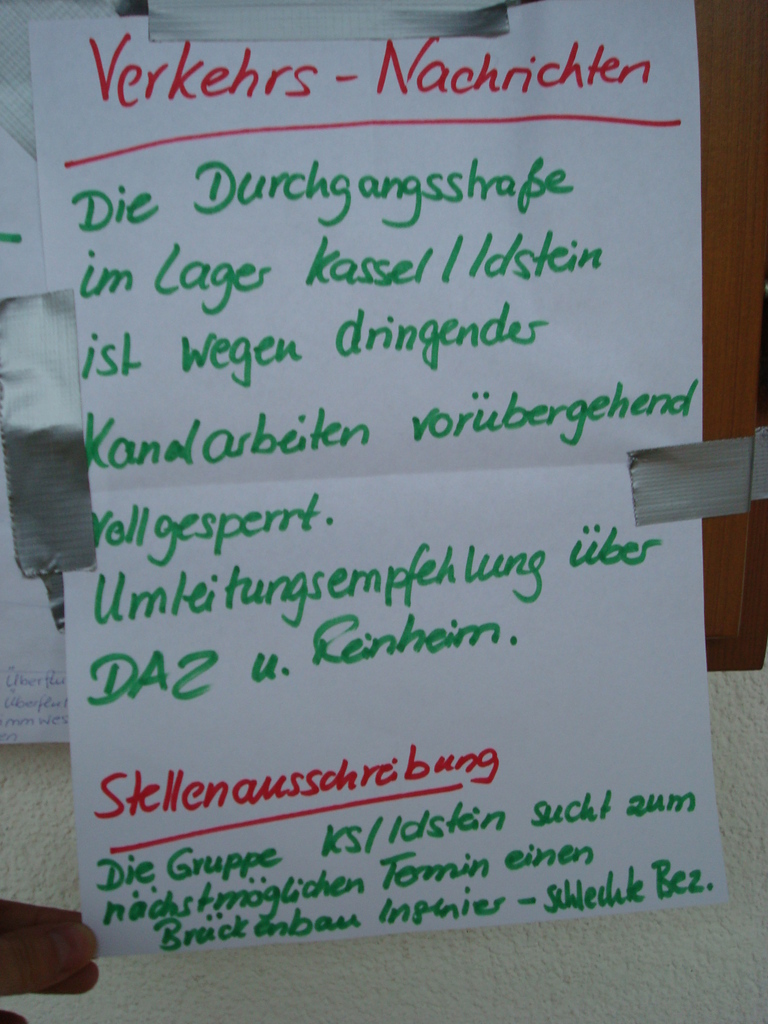 Verkehrs - Nachrichten
Die Durchgangsstraße
im Lager Kassel/Idstein
ist wegen dringender
Kanalarbeiten vorübergehend
voll gesperrt.
Umleitungsempfehlung über
DAZ u. Reinheim.
Stellenausschreibung
Die Gruppe KS/Idstein sucht zum
nächstmöglichen Termin einen
Brückenbau Ingenier - schlechte Bez.
Überflu
Überflut
imm wes
en